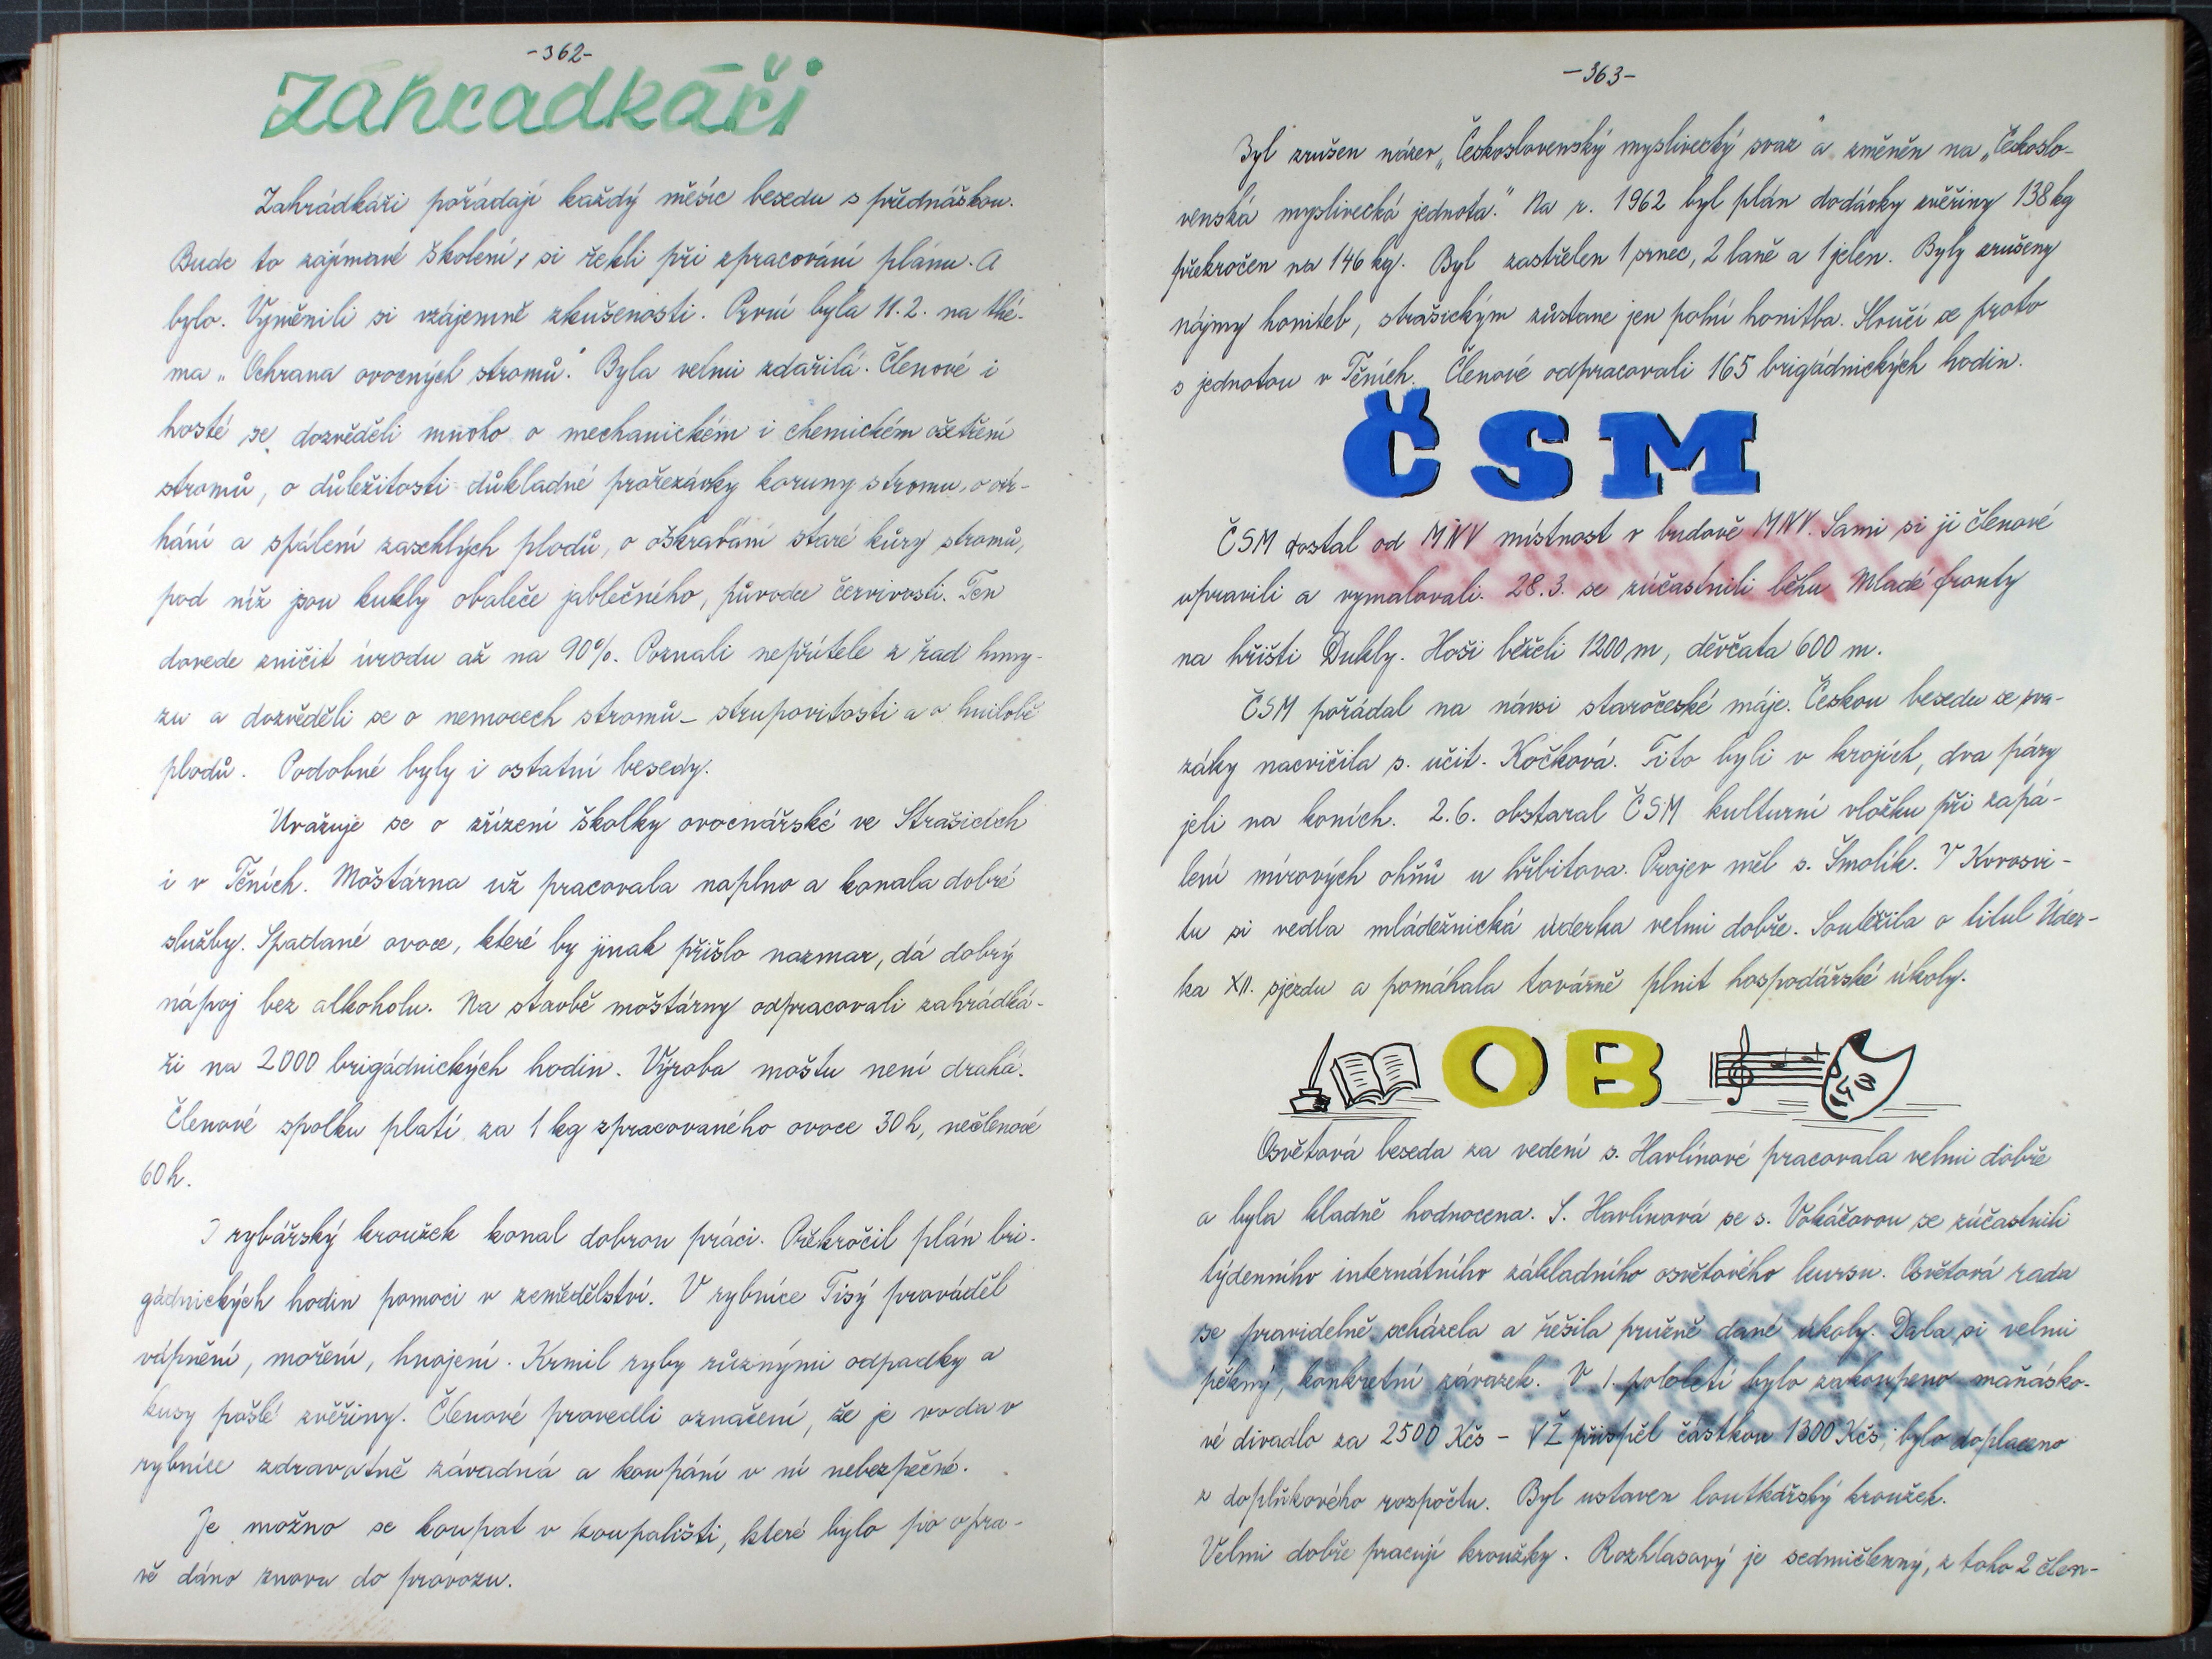 -362-
Zahrádkáři
Zahrádkáři pořádají každý měsíc besedu s přednáškou.
Bude to zajímavé školení, si řekli při zpracování plánu. A
bylo. Vyměnili si vzájemně zkušenosti. První byla 11.2. na thé-
ma „Ochrana ovocných stromů." Byla velmi zdařilá. Členové i
hosté se dozvěděli mnoho o mechanickém i chemickém ošetření
stromů, o důležitosti důkladné prořezávky koruny stromu, o otr-
hání a spálení zaschlých plodů, o oškrabání staré kůry stromů,
pod níž jsou kukly obaleče jablečného, původce červivosti. Ten
dovede zničit úrodu až na 90%. Poznali nepřítele z řad hmy-
zu a dozvěděli se o nemocech stromů - strupovitosti a o hnilobě
plodů. Podobné byly i ostatní besedy.
Uvažuje se o zřízení školky ovocnářské ve Strašicích
i v Těních. Moštárna už pracovala naplno a konala dobré
služby. Spadané ovoce, které by jinak přišlo nazmar, dá dobrý
nápoj bez alkoholu. Na stavbě moštárny odpracovali zahrádká-
ři na 2000 brigádnických hodin. Výroba moštu není drahá.
Členové spolku platí za 1 kg zpracovaného ovoce 30 h, nečlenové
60 h.
I rybářský kroužek konal dobrou práci. Překročil plán bri-
gádnických hodin pomoci v zemědělství. V rybníce Tisý prováděl
vápnění, moření, hnojení. Krmil ryby různými odpadky a
kusy pošlé zvěřiny. Členové provedli označení, že je voda v
rybníce zdravotně závadná a koupání v ní nebezpečné.
Je možno se koupat v koupališti, které bylo po opra-
vě dáno znovu do provozu.
-363-
Byl zrušen název „Československý myslivecký svaz" a změněn na „Českoslo-
venská myslivecká jednota." Na r. 1962 byl plán dodávky zvěřiny 138 kg
překročen na 146 kg. Byl zastřelen 1 srnec, 2 laně a 1 jelen. Byly zrušeny
nájmy honiteb, strašickým zůstane jen polní honitba. Sloučí se proto
s jednotou v Těních. Členové odpracovali 165 brigádnických hodin.
ČSM
ČSM dostal od MNV místnost v budově MNV. Sami si ji členové
upravili a vymalovali. 28.3. se zúčastnili běhu Mladé fronty
na hřišti Dukly. Hoši běželi 1200 m, děvčata 600 m.
ČSM pořádal na návsi staročeské máje. Českou besedu se sva-
záky nacvičila s. učit. Kočková. Tito byli v krojích, dva páry
jeli na koních. 2.6. obstaral ČSM kulturní vložku při zapá-
lení mírových ohňů u hřbitova. Projev měl s. Smolík. V Kovosvi-
tu si vedla mládežnická úderka velmi dobře. Soutěžila o titul Úder-
ka XII. sjezdu a pomáhala továrně plnit hospodářské úkoly.
OB
Osvětová beseda za vedení s. Havlínové pracovala velmi dobře
a byla kladně hodnocena. S. Havlínová se s. Vokáčovou se zúčastnili
týdenního internátního základního osvětového kursu. Osvětová rada
se pravidelně scházela a řešila pružně dané úkoly. Dala si velmi
pěkný, konkrétní závazek. V I. pololetí bylo zakoupeno maňásko-
vé divadlo za 2500 Kčs - VŽ přispěl částkou 1300 Kčs, bylo doplaceno
z doplňkového rozpočtu. Byl ustaven loutkářský kroužek.
Velmi dobře pracují kroužky. Rozhlasový je sedmičlenný, z toho 2 člen-